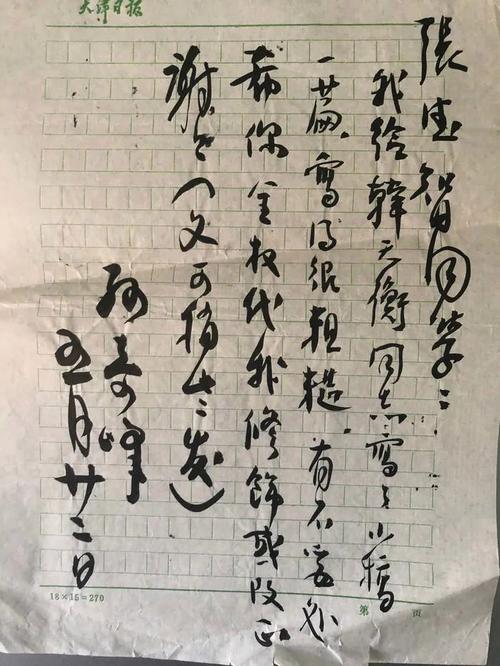 天津日报
張德智同学：
我给韓天衡同志寫了小稿
一篇，寫得很粗糙。有不妥处
希你全权代我修飾或改正
谢谢（文可稍发）
孫奇峰
五月廿二日
18×15=270 第 页